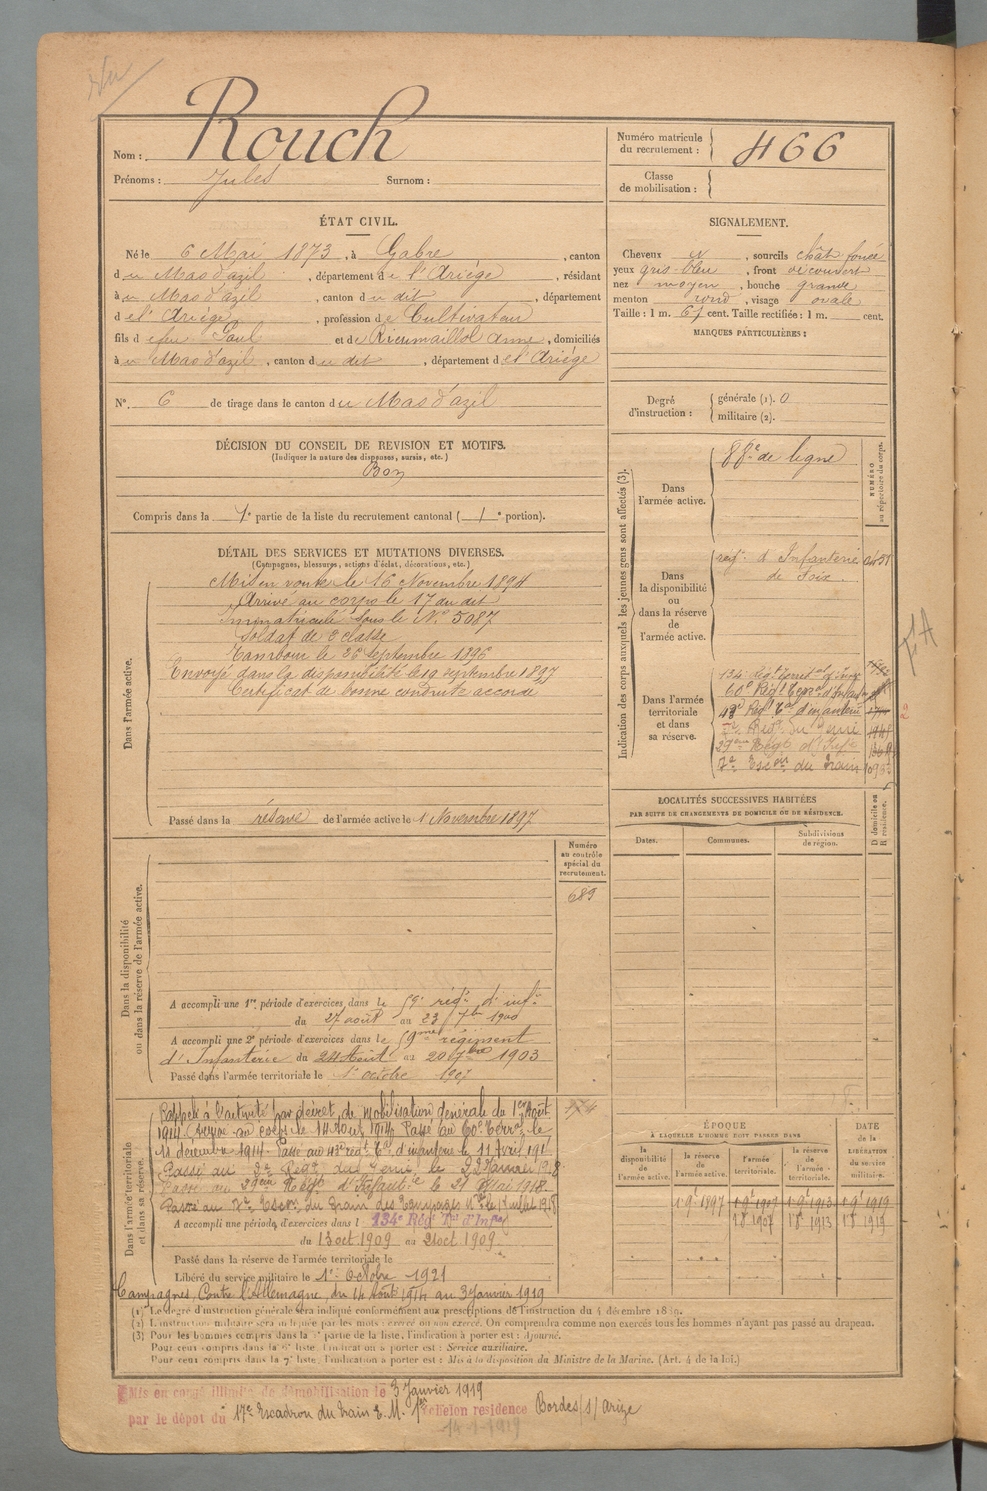 Nom : Rouch
Prénoms : Jules Surnom :
Numéro matricule du recrutement : 466
Classe de mobilisation :
ÉTAT CIVIL.
Né le 6 Mai 1873, à Gabre, canton
du Mas d'azil, département de l'Ariège, résidant
au Mas d'azil, canton du dit, département
de l'Ariège, profession de Cultivateur
fils de feu Paul et de Rieumaillol Anne, domiciliés
au Mas d'azil, canton du dit, département de l'Ariège
N° 6 de tirage dans le canton du Mas d'azil
SIGNALEMENT.
Cheveux et, sourcils chât foncé
yeux gris bleu, front découvert
nez moyen, bouche grande
menton rond, visage ovale
Taille : 1 m. 67 cent. Taille rectifiée : 1 m. cent.
MARQUES PARTICULIÈRES :
Degré d'instruction : générale (1). 0
militaire (2).
DÉCISION DU CONSEIL DE REVISION ET MOTIFS.
(Indiquer la nature des dispenses, sursis, etc.)
Bon
Compris dans la 1e partie de la liste du recrutement cantonal (1e portion).
DÉTAIL DES SERVICES ET MUTATIONS DIVERSES.
(Campagnes, blessures, actions d'éclat, décorations, etc.)
Dans l'armée active.
Mis en route le 16 Novembre 1894
Arrivé au corps le 17 du dit
Immatriculé sous le N° 5087
Soldat de 2e classe
Tambour le 26 Septembre 1896
Envoyé dans la disponibilité le 19 septembre 1897
Certificat de bonne conduite accordé
Passé dans la réserve de l'armée active le 1 Novembre 1897
Indication des corps auxquels les jeunes gens sont affectés (3).
NUMÉRO au répertoire du corps.
Dans l'armée active.
88e de ligne
Dans la disponibilité ou dans la réserve de l'armée active.
régt d'Infanterie
de Foix.
Dans l'armée territoriale et dans sa réserve.
134e Régt territal d'Infie
60e Régt Terral d'Infan
43e Régt Tal d'infanterie
2e Régt du Génie
29ème Régt d'Infie
7e Escon du Train
LOCALITÉS SUCCESSIVES HABITÉES
PAR SUITE DE CHANGEMENTS DE DOMICILE OU DE RÉSIDENCE.
Dates. Communes. Subdivisions de région. D domicile ou R résidence.
Dans la disponibilité ou dans la réserve de l'armée active.
Numéro au contrôle spécial du recrutement.
689
A accompli une 1re période d'exercices dans le 59e régt d'infie
du 27 août au 23 7bre 1900
A accompli une 2e période d'exercices dans le 59me régiment
d'Infanterie du 24 Août au 20 7bre 1903
Passé dans l'armée territoriale le 1er octobre 1907
Dans l'armée territoriale et dans sa réserve.
974
Rappelé à l'activité par décret de mobilisation générale du 1er Août
1914. Arrivé au corps le 14 Août 1914. Passé au 60e Terral le
11 décembre 1914. Passé au 43e régt Tal d'infanterie le 11 Avril 191
Passé au 2e Régt du Génie le 22 Janvier 1918
Passé au 29ème Régt d'Infanterie le 21 Mai 1918.
Passé au 7e Escon du Train des Equipages Mres le 1 Juillet 1918
A accompli une période d'exercices dans l 134e Régt Tal d'Infie
du 13 oct 1909 au 21 oct 1909
Passé dans la réserve de l'armée territoriale le
Libéré du service militaire le 1er Octobre 1921
Campagnes, Contre l'Allemagne, du 14 Août 1914 au 3 Janvier 1919
ÉPOQUE
À LAQUELLE L'HOMME DOIT PASSER DANS
DATE de la LIBÉRATION du service militaire.
la disponibilité de l'armée active. la réserve de l'armée active. l'armée territoriale. la réserve de l'armée territoriale.
1 9e 1897 1 9e 1907 1 9e 1913 1 9e 1919
1 8e 1907 1 8e 1913 1 8e 1919
(1) Le degré d'instruction générale sera indiqué conformément aux prescriptions de l'instruction du 4 décembre 1889.
(2) L'instruction militaire sera indiquée par les mots : exercé ou non exercé. On comprendra comme non exercés tous les hommes n'ayant pas passé au drapeau.
(3) Pour les hommes compris dans la 5e partie de la liste, l'indication à porter est : Ajourné.
Pour ceux compris dans la 6e liste, l'indication à porter est : Service auxiliaire.
Pour ceux compris dans la 7e liste, l'indication à porter est : Mis à la disposition du Ministre de la Marine. (Art. 4 de la loi.)
Mis en congé illimité de démobilisation le 3 Janvier 1919
par le dépôt du 17e Escadron du train E. M. 1er échelon résidence Bordes/s/Arize
14-1-1919